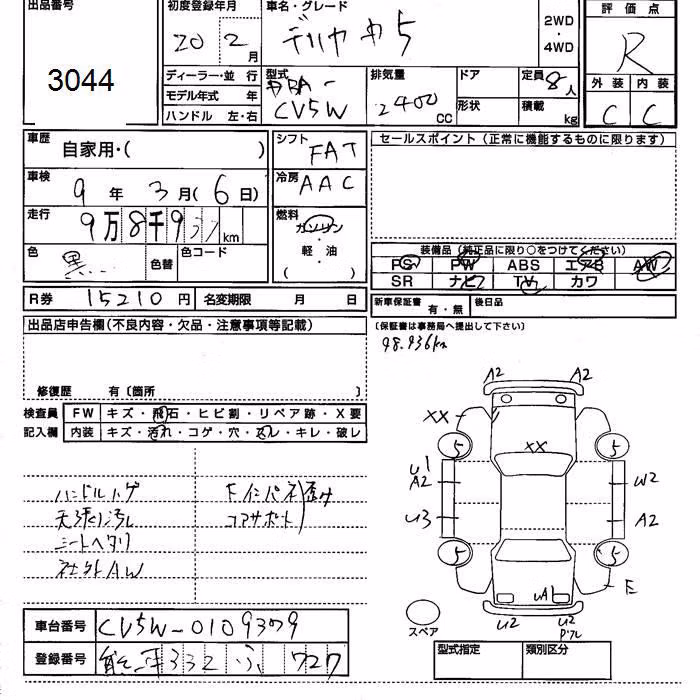 出品番号
3044
初度登録年月
20 2 月
車名・グレード
デリカD5
2WD
・
4WD
評価点
R
外装 内装
C C
ディーラー・並 行
モデル年式 年
ハンドル 左・右
型式
DBA-
CV5W
排気量
2400
CC
ドア
形状
定員 8 人
積載 kg
車歴
自家用・( )
車検
9 年 3 月 ( 6 日)
走行
9万8千9 km
色
黒
色替
色コード
シフト
FAT
冷房
AAC
燃料
ガソリン
・
軽・油
( )
セールスポイント (正常に機能するものに限ります)
装備品 (純正品に限り○をつけてください)
PS PW ABS エアB AW
SR ナビ TV カワ
R券 15210 円
名変期限 月 日
新車保証書 有・無
後日品
(保証書は事務局へ提出して下さい)
98.936km
出品店申告欄(不良内容・欠品・注意事項等記載)
修復歴 有〔箇所 〕
検査員 FW キズ・飛石・ヒビ割・リペア跡・X要
記入欄 内装 キズ・汚れ・コゲ・穴・スレ・キレ・破レ
ハンドルハゲ
天張り汚れ
シートヘタリ
社外AW
Fインパネ
コアサポート
歪み
A2 A2
XX
XX
5 5
U1
A2
W2
U3
A2
5 5
E
UA1
U2
U2
スペア
車台番号 CV5W-0109379
登録番号 332 727
型式指定 類別区分